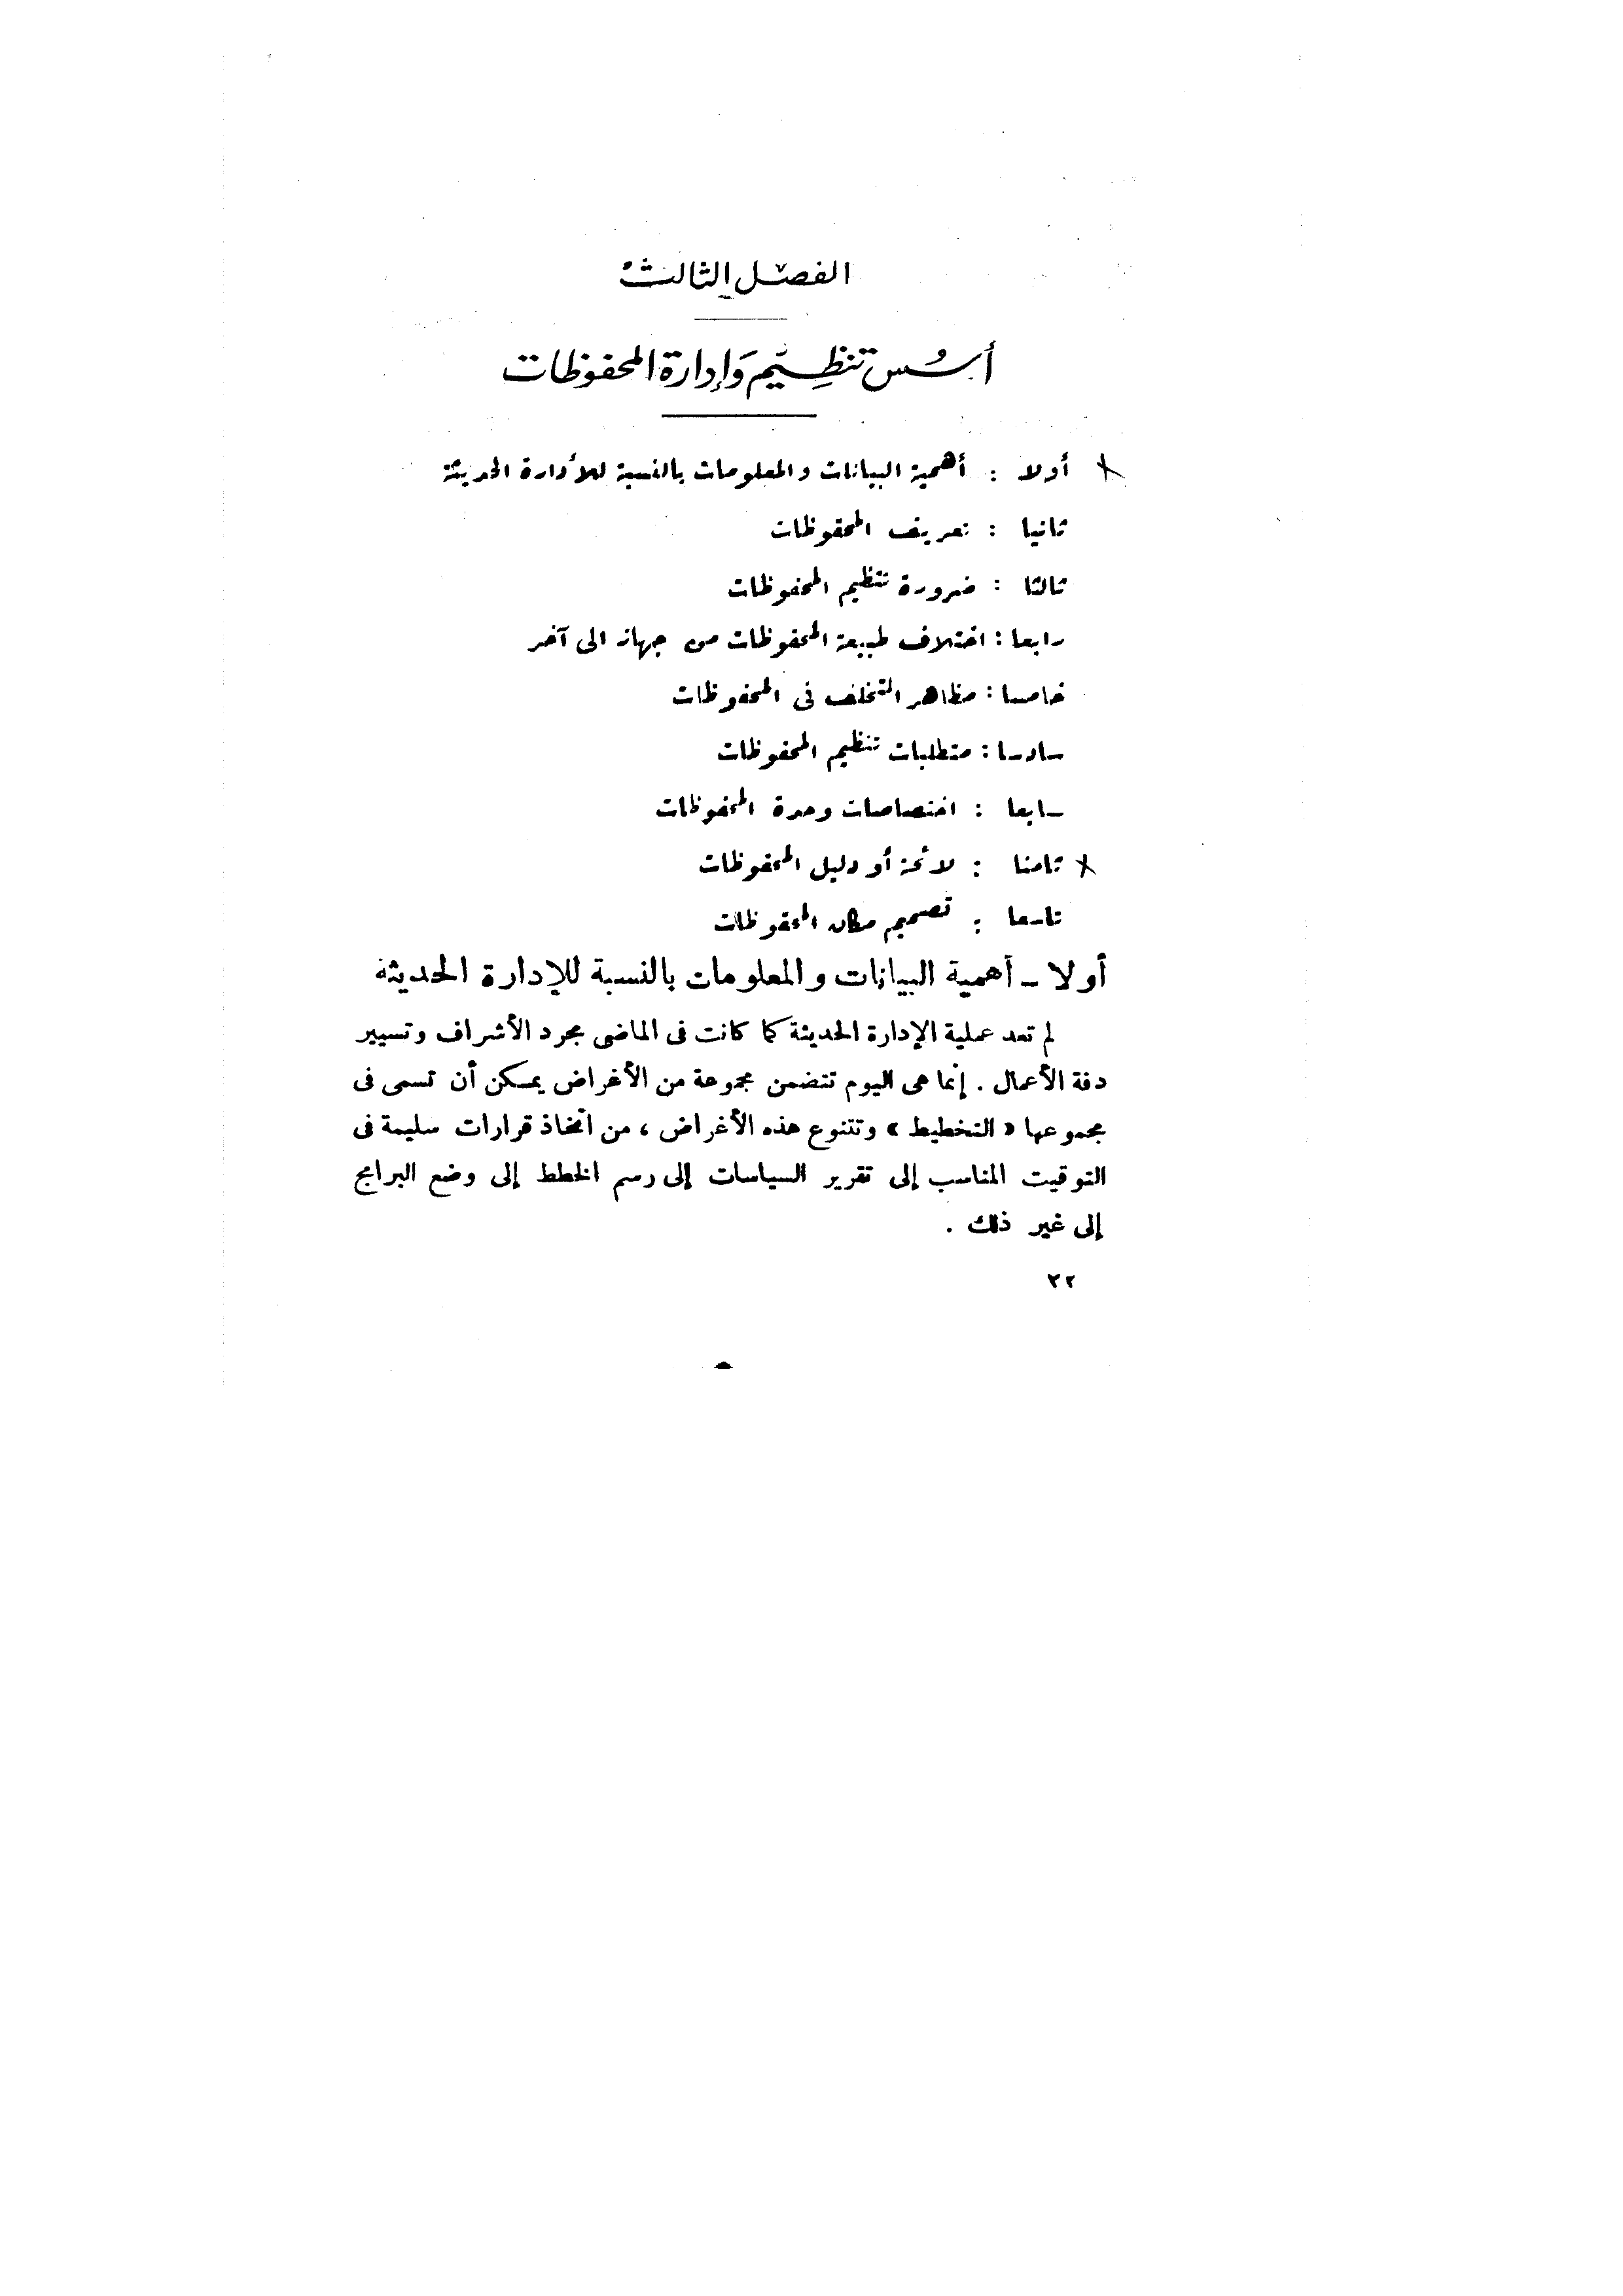 الفصل الثالث
أسس تنظيم وإدارة المحفوظات
أولا : أهمية البيانات والمعلومات بالنسبة للأدارة الحديثة
ثانيا : تعريف المحفوظات
ثالثا : ضرورة تنظيم المحفوظات
رابعا : اختلاف طبيعة المحفوظات من جهاز الى آخر
خامسا : مظاهر التخلف فى المحفوظات
سادسا : متطلبات تنظيم المحفوظات
سابعا : اختصاصات وحدة المحفوظات
ثامنا : لائحة أو دليل المحفوظات
تاسعا : تصميم مكان المحفوظات
أولا – أهمية البيانات والمعلومات بالنسبة للإدارة الحديثة
لم تعد عملية الإدارة الحديثة كما كانت فى الماضى مجرد الأشراف وتسيير
دفة الأعمال . إنما هى اليوم تتضمن مجموعة من الأغراض يمكن أن تسمى فى
مجموعها « التخطيط » وتتنوع هذه الأغراض ، من اتخاذ قرارات سليمة فى
التوقيت المناسب إلى تقرير السياسات إلى رسم الخطط إلى وضع البرامج
إلى غير ذلك .
٢٢